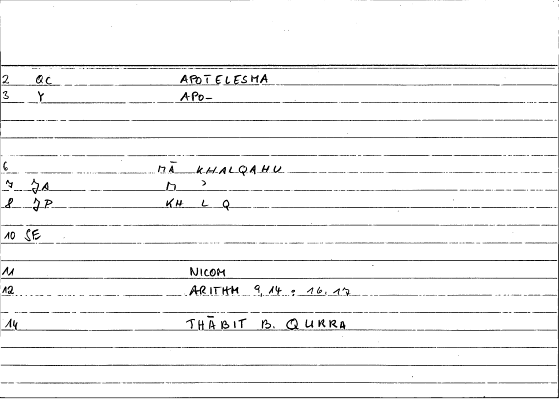 2 QC APOTELESMA
3 Y APO-
6 MĀ KHALQAHU
7 JA M ʾ
8 JP KH L Q
10 SE
11 NICOM
12 ARITHM 9,14 = 16.17
14 THĀBIT B. QURRA